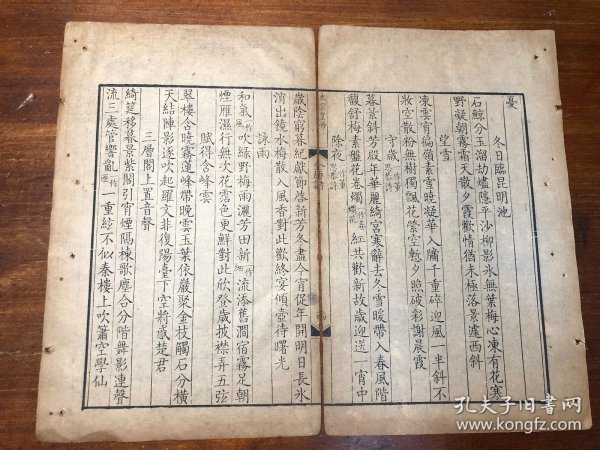 憂
冬日臨昆明池
石鯨分玉溜劫燼隱平沙柳影氷無葉梅心凍有花寒
野凝朝霧霜天散夕霞歡情猶未極落景遽西斜
望雪
凍雲宵徧嶺素雪曉凝華入牖千重碎迎風一半斜不
妝空散粉無樹獨飄花縈空慙夕照破彩謝晨霞
守歲
暮景斜芳殿年華麗綺宮寒辭去冬雪暖帶入春風階
馥舒梅素盤花卷燭紅共歡新故歲迎送一宵中
除夜
歲陰窮暮紀獻節啓新芳冬盡今宵促年開明日長氷
消出鏡水梅散入風香對此歡終宴傾壺待曙光
詠雨
和氣吹綠野梅雨灑芳田新流添舊澗宿霧足朝
煙雁濕行無次花霑色更鮮對此欣登歲披襟弄五弦
賦得含峰雲
翠樓含曉霧蓮峰帶晚雲玉葉依巖聚金枝觸石分橫
天結陣影逐吹起羅文非復陽臺下空將惑楚君
三層閣上置音聲
綺筵移暮景紫閣引宵煙隔棟歌塵合分階舞影連聲
流三處管響亂一重弦不似秦樓上吹簫空學仙
孔夫子旧書网
www.kongfz.com